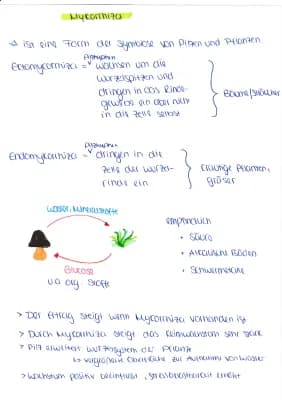 Mykorrhiza
→ ist eine Form der Symbiose von Pilzen und Pflanzen
Ectomycorrhiza = wachsen um die
Wurzelspitzen und
dringen in das Rinde-
gewebe ein aber nicht
in die Zelle selbst
Bäume/Sträucher
Endomycorrhiza = dringen in die
Zelle der Wurzel-
rinde ein
Pflanzen,
Gräser
Wasser, Mineralstoffe
Glucose
u.a. org. Stoffe
empfindlich
• Säure
• Alkalische Böden
• Schwermetalle
> Der Ertrag steigt wenn Mykorrhiza vorhanden ist
> Durch Mykorrhiza steigt das Keimwachstum sehr stark
> Pilz erweitert Wurzelsystem der Pflanze
↳ vergrößerte Oberfläche zur Aufnahme von Wasser
> Wachstum positiv beeinflusst, Stressbelastbarkeit erhöht